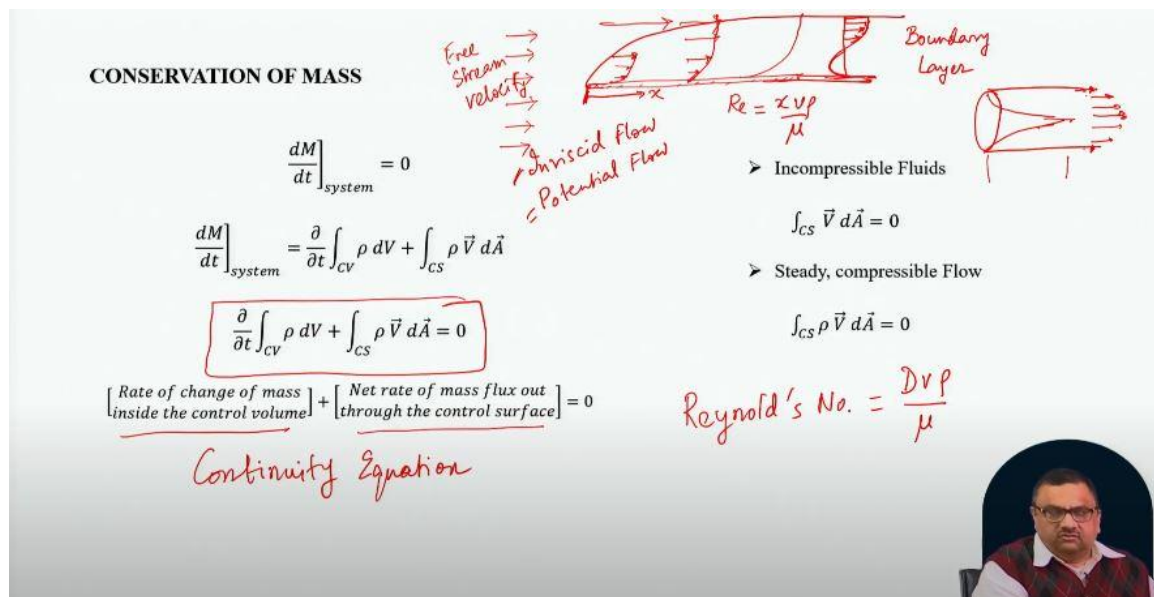 CONSERVATION OF MASS
Free
Stream
velocity
x
Boundary
Layer
Re = xvρ/μ
Inviscid Flow
Potential Flow
dM/dt]system = 0
dM/dt]system = ∂/∂t ∫CV ρ dV + ∫CS ρ V⃗ dA⃗
∂/∂t ∫CV ρ dV + ∫CS ρ V⃗ dA⃗ = 0
[Rate of change of mass inside the control volume] + [Net rate of mass flux out through the control surface] = 0
Continuity Equation
➢ Incompressible Fluids
∫CS V⃗ dA⃗ = 0
➢ Steady, compressible Flow
∫CS ρ V⃗ dA⃗ = 0
Reynold's No. = Dvρ/μ